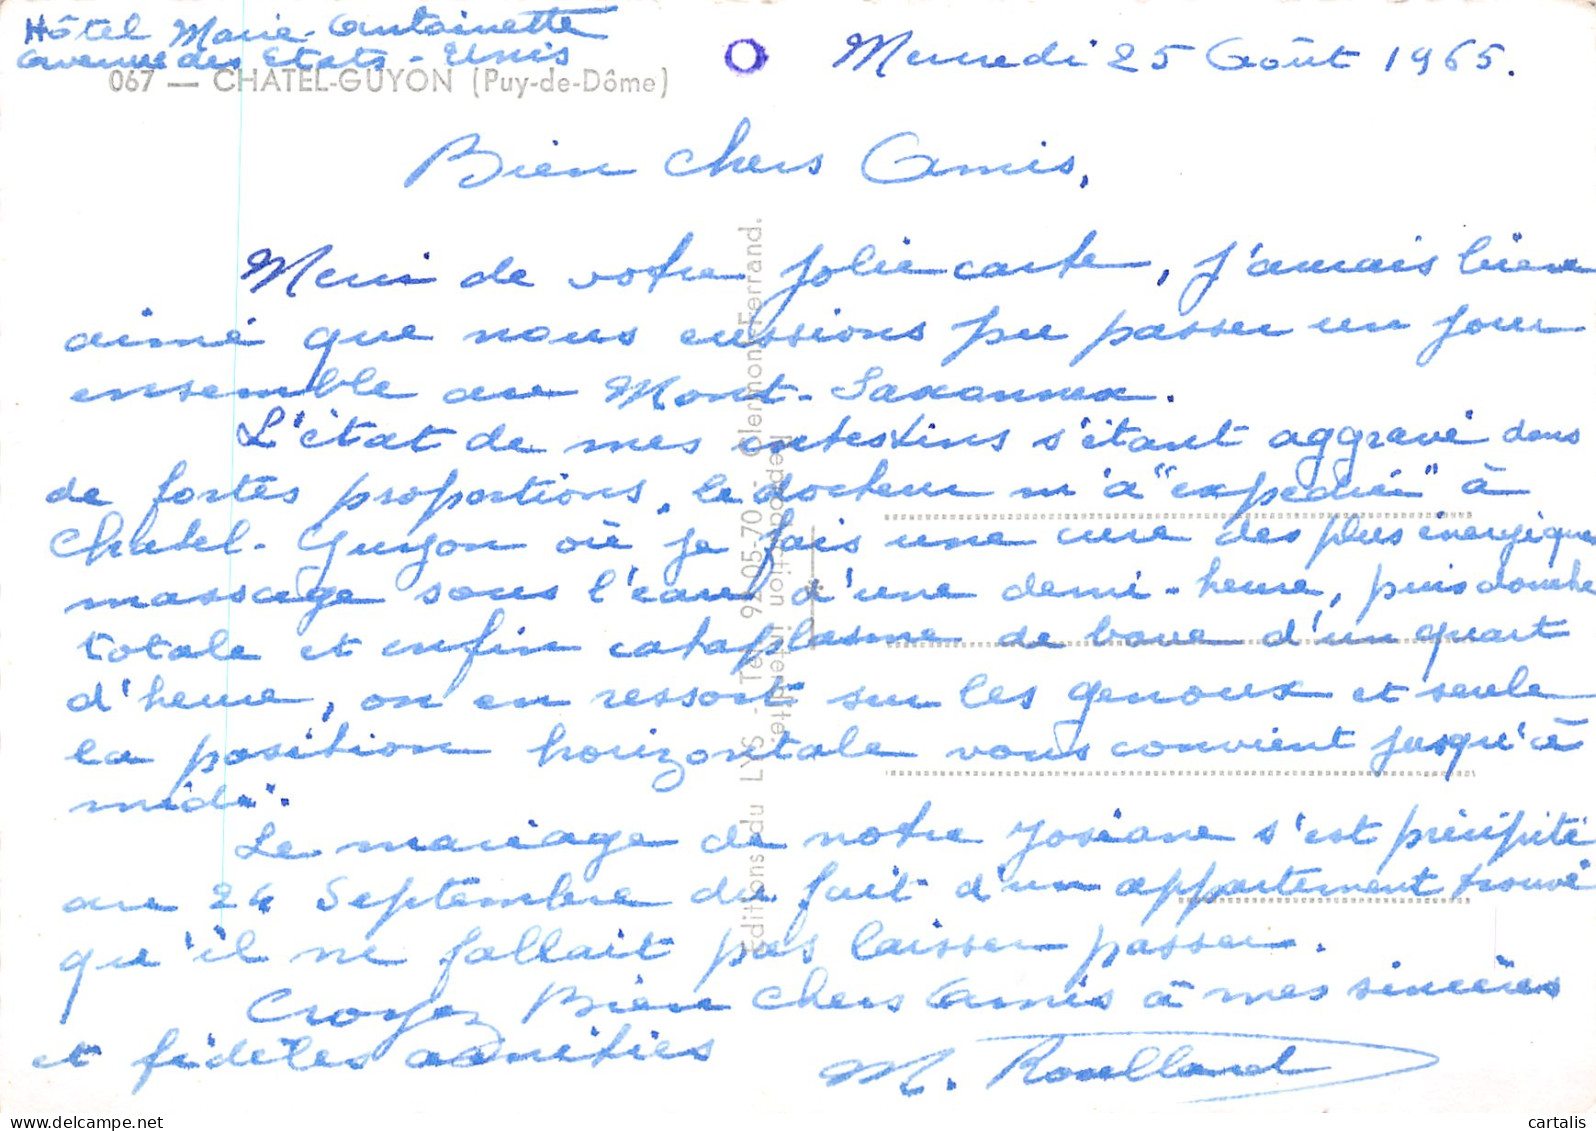 Hôtel Marie-Antoinette
Avenue des Etats-Unis
067 — CHATEL-GUYON (Puy-de-Dôme)
Mercredi 25 Août 1965.
Bien chers Amis,
Merci de votre jolie carte, j'amais bien
aimé que nous eussions pu passer un jour
ensemble au Mont-Saxonnex.
L'état de mes intestins s'étant aggravé dans
de fortes proportions, le docteur m'a "expédié" à
Chatel-Guyon où je fais une cure des plus énergiques
massage sous l'eau d'une demi-heure, puis douche
totale et enfin cataplasme de boue d'un quart
d'heure, on en ressort sur les genoux et seule
la position horizontale vous convient jusqu'à
midi.
Le mariage de notre Josiane s'est précipité
au 24 Septembre du fait d'un appartement trouvé
qu'il ne fallait pas laisser passer.
Croyez Bien chers Amis à mes sincères
et fidèles amitiés
M. Roulland
Editions du LYS - Tél. 92-05-70 - Clermont-Ferrand.
Reproduction interdite.
cartalis